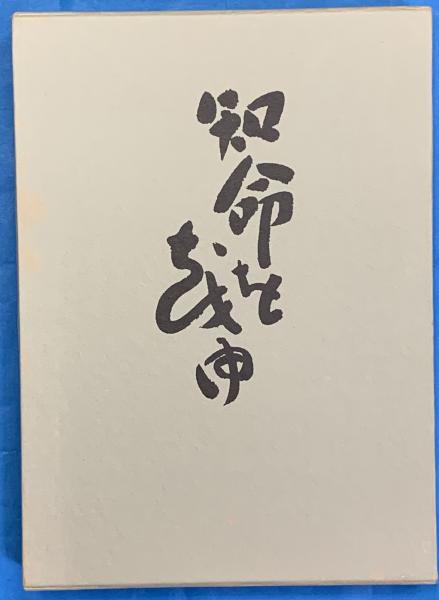 知命を越ゆ